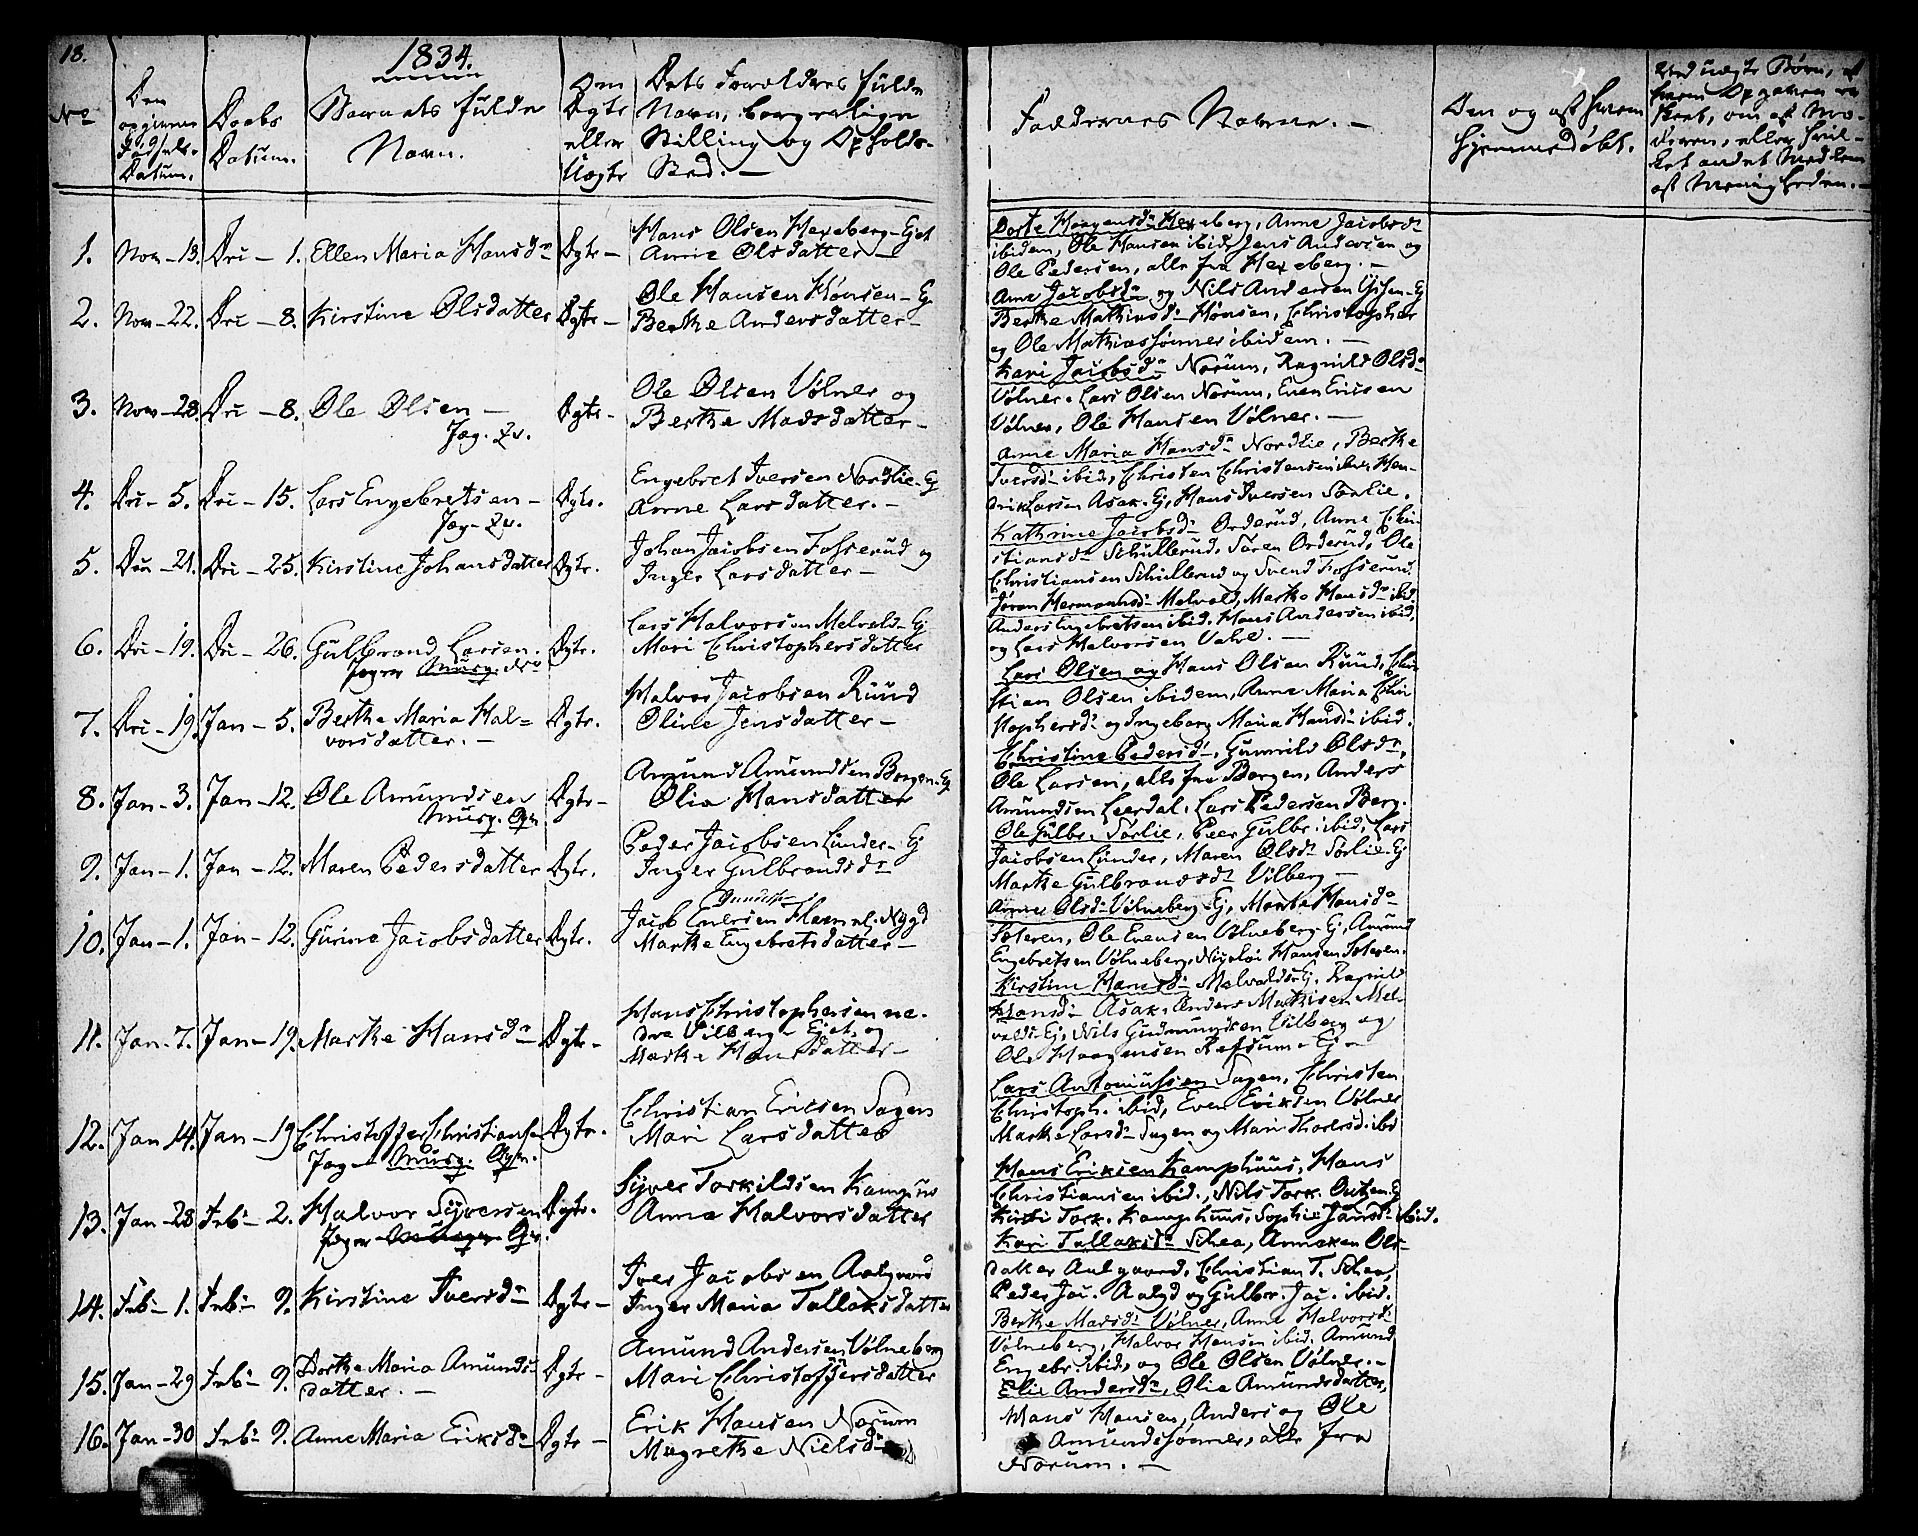 18.
1834.
No
Den
opgivne
Fødsels-
Datum.
Daabs
Datum.
Barnets fulde
Navn.
Om
Ægte
eller
Uægte
Dets Forældres fulde
Navn, borgerlige
Stilling og Opholds-
Sted. —
1. Nov - 13. Dec - 1. Ellen Maria Hansdr Ægte -
Hans Olsen Hexeberg - Ejet
Anne Olsdatter -
2. Nov - 22. Dec - 8. Kirstine Olsdatter Ægte -
Ole Hansen Hønsen - Ej
Berthe Andersdatter -
3. Nov - 28. Dec - 8. Ole Olsen -
Jæg.
Ægte -
Ole Olsen Vølner og
Berthe Madsdatter -
4. Dec - 5. Dec - 15. Lars Engebretsen -
Jæg -
Ægte.
Engebret Iversen Nordlie - Ej
Anne Larsdatter. -
5. Dec - 21. Dec - 25. Kirstine Johansdatter Ægte.
Johan Jacobsen Fosserud og
Inger Larsdatter -
6. Dec - 19. Dec - 26. Gulbrand Larsen.
Jæger
Ægte.
Lars Halvorsen Melvold - Ej
Mari Christophersdatter
7. Dec - 19. Jan - 5. Berthe Maria Hal-
vorsdatter. -
Ægte.
Halvor Jacobsen Ruud
Oline Jensdatter -
8. Jan - 3. Jan - 12. Ole Amundsen
Ægte -
Amund Amundsen Borgen - Ej
Olia Hansdatter
9. Jan - 1. Jan - 12. Maren Pedersdatter Ægte.
Peder Jacobsen Linder - Ej
Inger Gulbrandsdr
10. Jan - 1. Jan - 12. Gurine Jacobsdatter Ægte.
Jacob Evensen
Marthe Engebretsdatter -
11. Jan - 7. Jan - 19. Marthe Hansdr Ægte -
Hans Christophersen ne-
dre Vilberg - Ejet, og
Marthe Hansdatter -
12. Jan 14. Jan - 19 Christoffer Christiansen Ægte.
Jæg -
Christian Ericsen Sagen
Mari Larsdatter
13. Jan - 28 Feb - 2. Halvor Syversen Ægte.
Jæger
Syver Torkildsen Kamphuus
Anne Halvorsdatter
14. Feb - 1. Feb - 9. Kirstine Iversdr Ægte -
Iver Jacobsen Aalgaard
Inger Maria Tallaksdatter
15. Jan - 29 Feb - 9. Dorthe Maria Amunds-
datter. -
Ægte -
Amund Andersen Vølneberg
Mari Christoffersdatter
16. Jan - 30 Feb - 9. Anne Maria Eriksdr Ægte -
Erik Hansen Norum
Magrethe Nielsdr
Faddernes Navne. —
Den og af hvem
hjemmedøbt.
Ved uægte Børn, af
hvem Opgaven er
skeet, om af Mo-
deren, eller hvil-
ket andet Medlem
af Menigheden. -
Dorte Haagensdr Hexeberg, Anne Jacobsdr
ibidem, Ole Hansen ibid, Jens Andersen og
Ole Pedersen, alle fra Hexeberg. -
Anne Jacobsdr og Nils Andersen - Ej
Berthe Mathiasdr Hønsen, Christopher
og Ole Mathiassønner ibidem. -
Kari Jacobsdr Norum, Ragnild Olsdr
Vølner, Lars Olsen Norum, Even Ericsen
Vølner, Ole Hansen Vølner. -
Anne Maria Hansdr Nordlie, Berthe
Iversdr ibid, Christen Christensen ibid, Hen-
drik Larsen Asak - Ej, Hans Iversen Sørlie.
Kathrine Jacobsdr Orderud, Anne Chri-
stiansdr Schullerud, Søren Orderud, Ole
Christiansen Schullerud og Svend Fosserud.
Jøran Hermansdr Melvold, Marthe Hansdr ibid.
Anders Engebretsen ibid, Hans Andersen ibid,
og Lars Halvorsen Valve. -
Lars Olsen og Hans Olsen Ruud, Chri-
stian Olsen ibidem, Anne Maria Chri-
stophersdr og Ingeborg Maria Hansdr ibid.
Christine Pedersdr, Gunnild Olsdr,
Ole Larsen, alle fra Borgen, Anders
Amundsen Leerdal, Lars Pedersen Berg.
Ole Gulbr. Sørlie, Peer Gulbr. ibid, Lars
Jacobsen Linder, Maren Olsdr Sørlie - Ej
Marthe Gulbrandsdr Vilberg -
Anne Olsdr Vølneberg - Ej, Marthe Hansdr
Soteren, Ole Evensen Vølneberg - Ej, Amund
Engebretsen Vølneberg, Nicolai Hansen Soteren.
Kirstine Hansdr Melvolds - Ej, Ragnild
Hansdr Asak, Anders Mathisen Mel-
volds - Ej, Nils Gudmundsen Vilberg og
Ole Haagensen Refsum - Ej -
Lars Antoniussen Sagen, Christen
Christoph. ibid, Even Eriksen Vølner
Marthe Larsdr Sagen og Mari Thoresdr ibid
Hans Eriksen Kamphuus, Hans
Christiansen ibid., Nils Tork.
Kirsti Tork. Kamphuus, Sophie Jansdr ibid.
Kari Tallaksdr Schea, Anneken Ols-
datter Aalgaard, Christian T. Schea,
Peder Jac. Aalgd og Gulbr. Jac. ibid.
Berthe Madsdr Vølner, Anne Halvorsdr
Vølneberg, Halvor Hansen ibid, Amund
Engebr. ibid, og Ole Olsen Vølner. -
Elie Andersdr, Olia Amundsdatter,
Hans Hansen, Anders og Ole
Amundssønner, alle fra
Norum. -